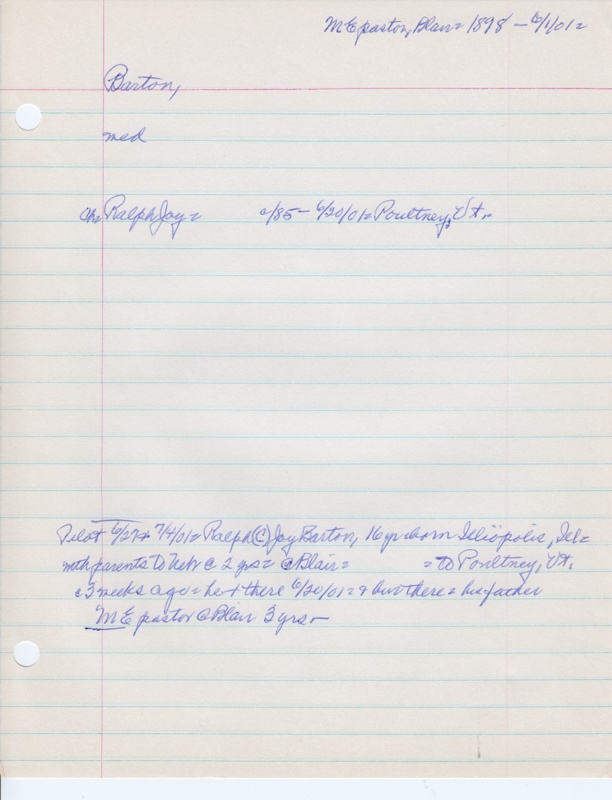 M E pastor, Blair = 1898 - 6/1/01 =
Barton,
med
ch = Ralph Joy = c/85 - 6/20/01 = Poultney, Vt. -
Pilot 6/27 + 7/4/01 = Ralph (C) Joy Barton, 16 yr = born Illiopolis, Ill =
with parents to Neb c 2 yrs = @ Blair = = to Poultney, Vt.
c 3 weeks ago = he + there 6/20/01 = & bur there = his father
M E pastor @ Blair 3 yrs -